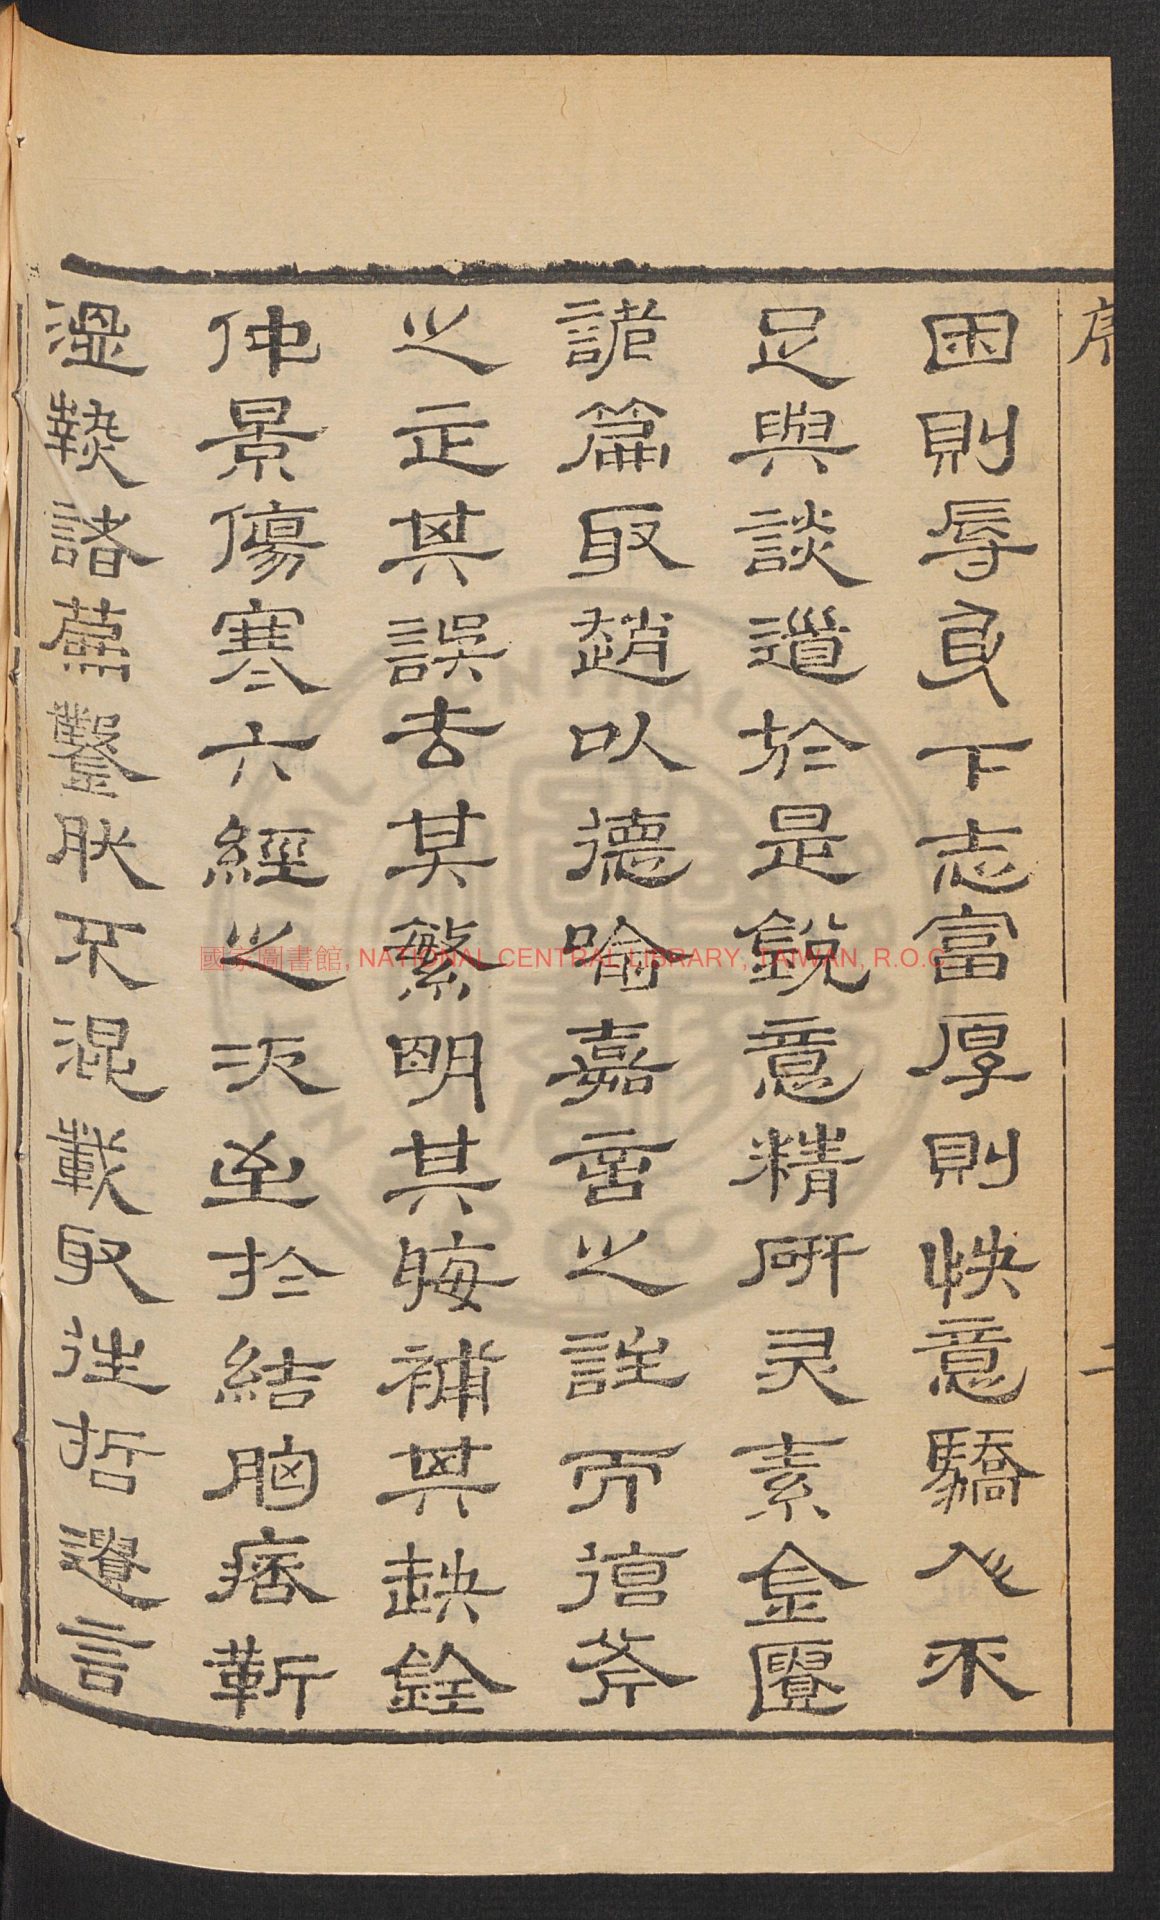 序 二
困則辱身下志富厚則快意驕人不
足與談道於是銳意精研灵素金匱
諸篇取趙以德喻嘉言之註而復斧
之正其誤去其繁明其晦補其缺銓
仲景傷寒六經之次至於結胸痞靳
溫熱諸蕪鑿不混載取往哲遺言
國家圖書館, NATIONAL CENTRAL LIBRARY, TAIWAN, R.O.C